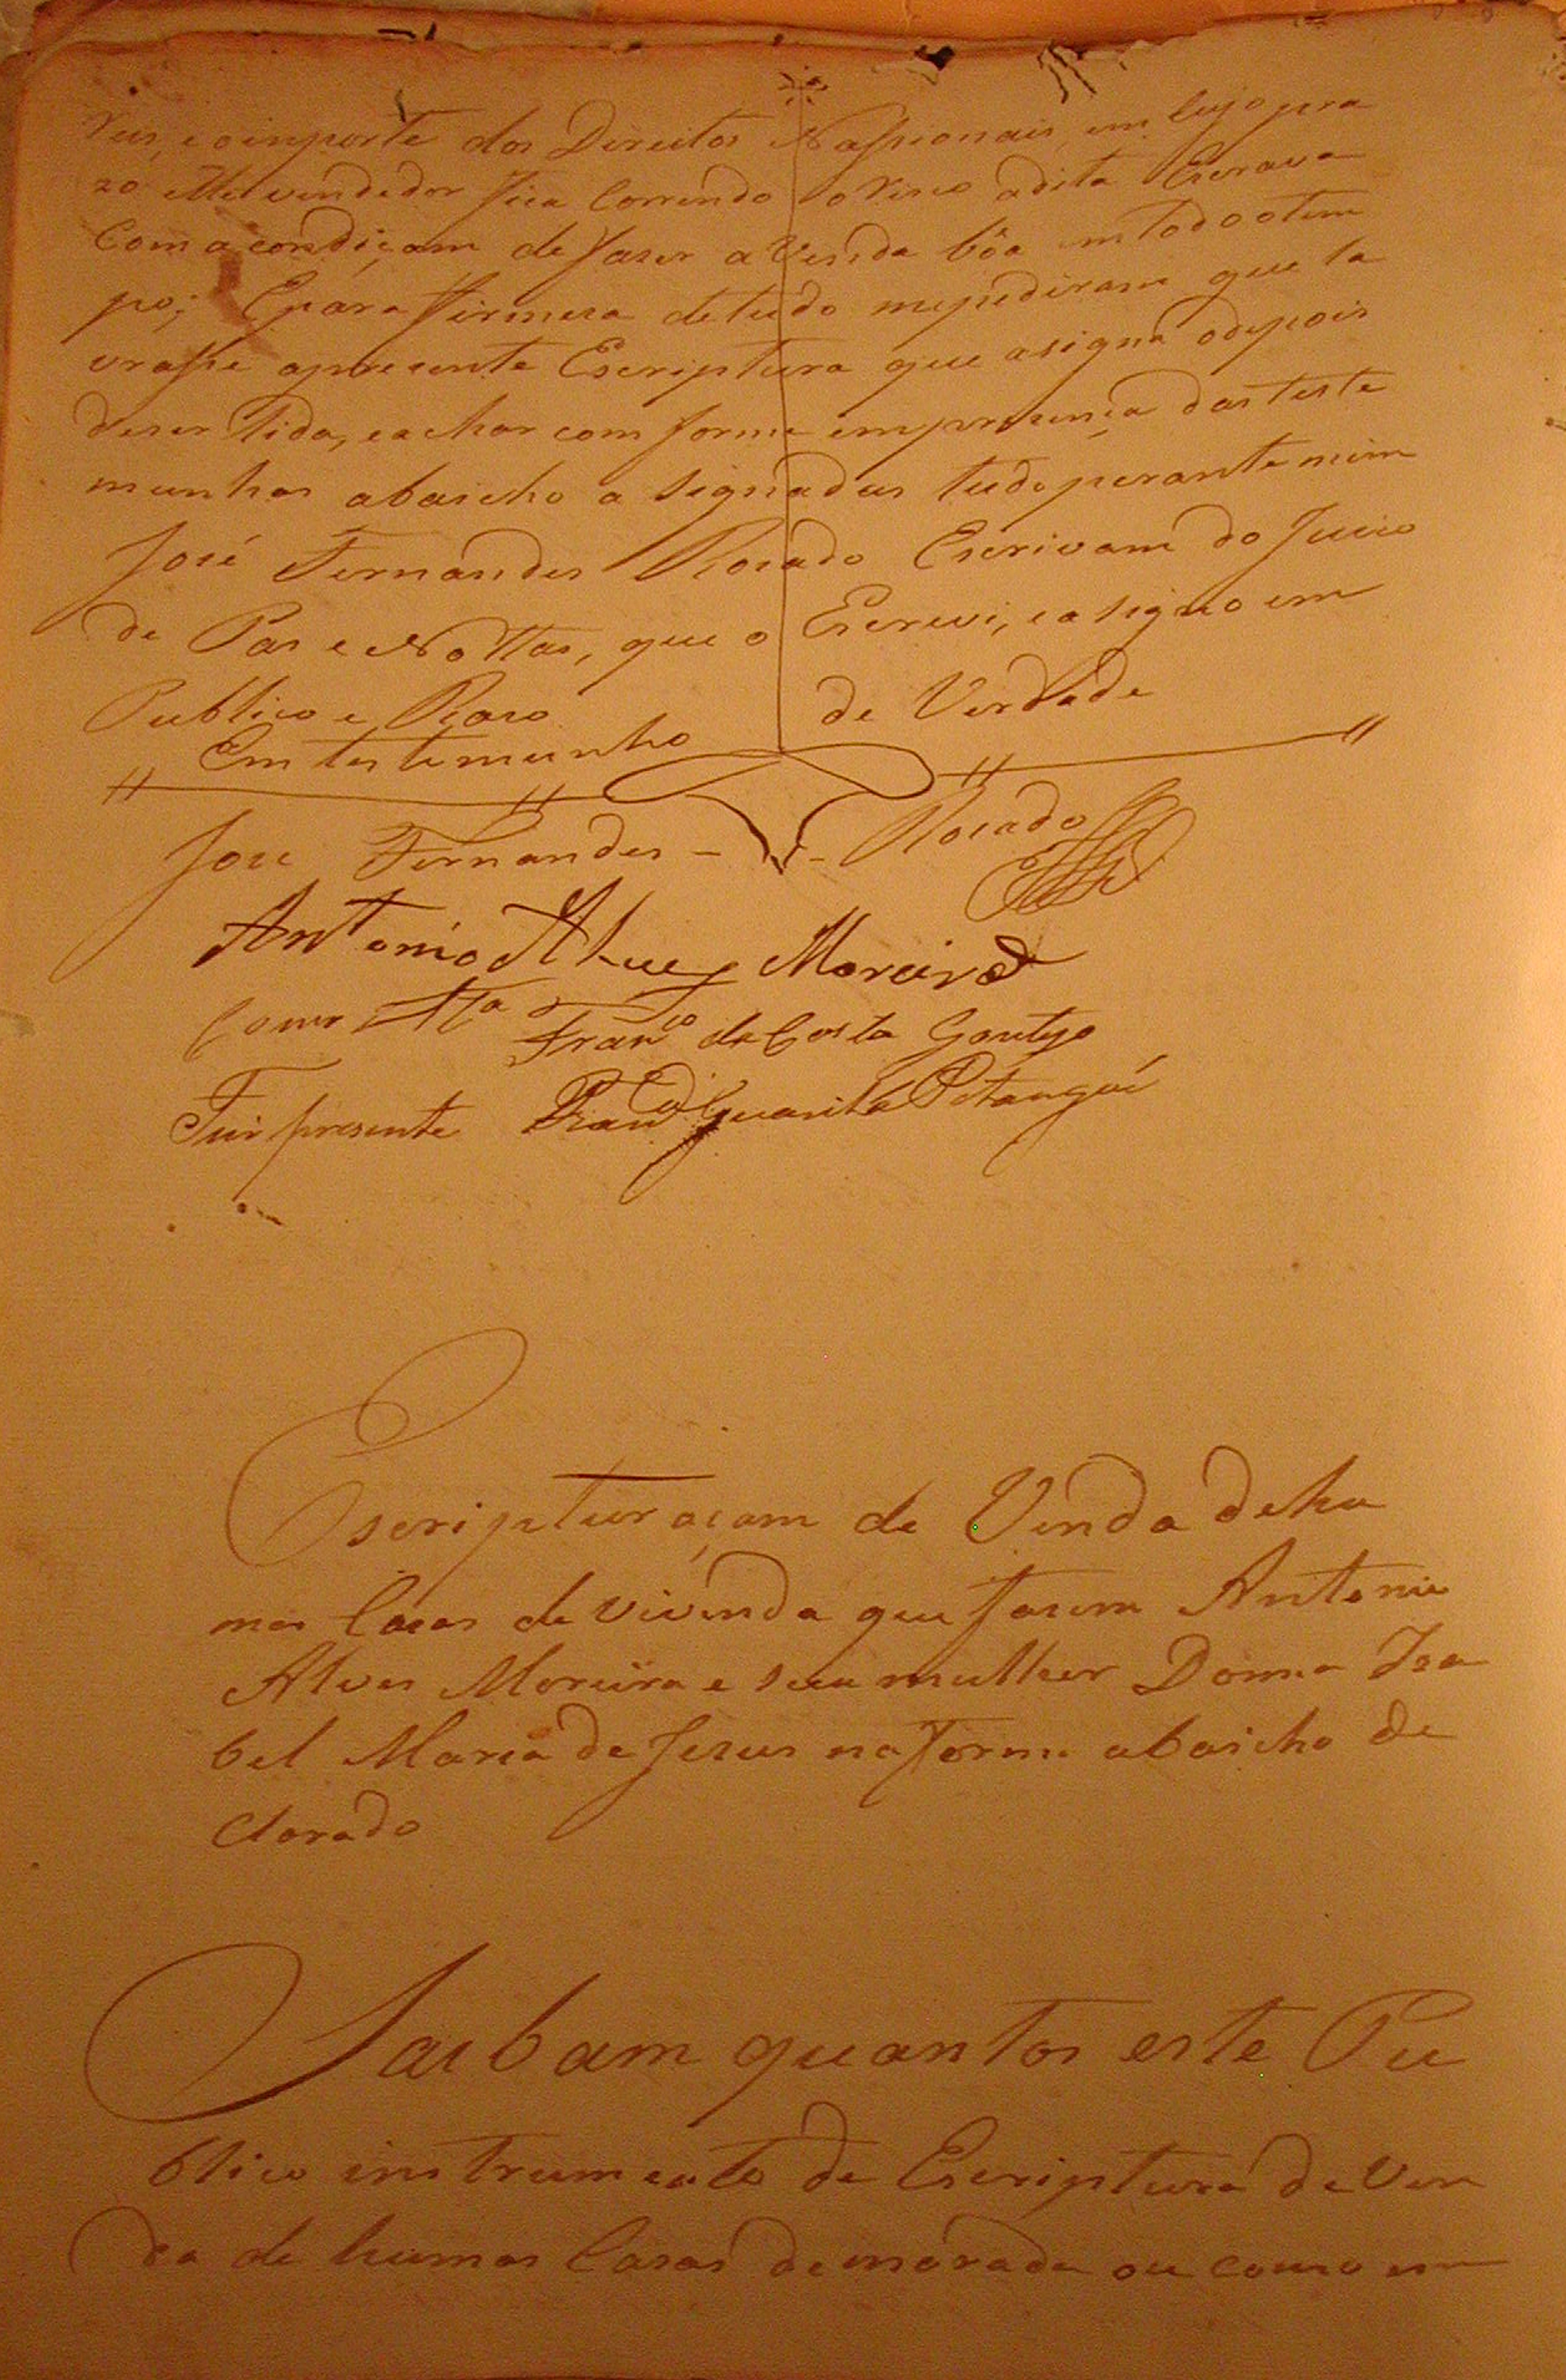 Reis, e oinporte dos Direitos Nassionais, em Cujo pra
zo elle vendedor fica Correndo o Risco adita Escrava
Com a condiçam de faser a Venda bôa emtodo otem
po; Epara firmesa detudo mepediram que la
vrasse apresente Escriptura que asigna odepois
deser lida, e achar com forme em presença das teste
munhas abaicho a Signadas tudo perante mim
José Fernandes Rosado Escrivam do Juiso
de Pas e Nottas, que o Escrevi, e asigno em
Publico e Raso
Em testemunho de Verdade
Jose Fernandes - - Rosado
Antonio Alues Moreira
Como tta Franco da Costa Gontijo
Fui presente Pitangui
Escripturaçam de Venda dehu
mas Casas de vivenda que fasem Antonio
Alves Moreira e sua mulher Donna Isa
bel Maria de Jesus na forma abaicho de
Clarado
Saibam quantos este Pu
blico instrumento de Escriptura de Ven
da de humas Casas demorada ou como em